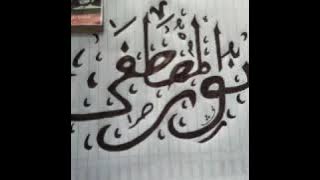 نور المصطفى